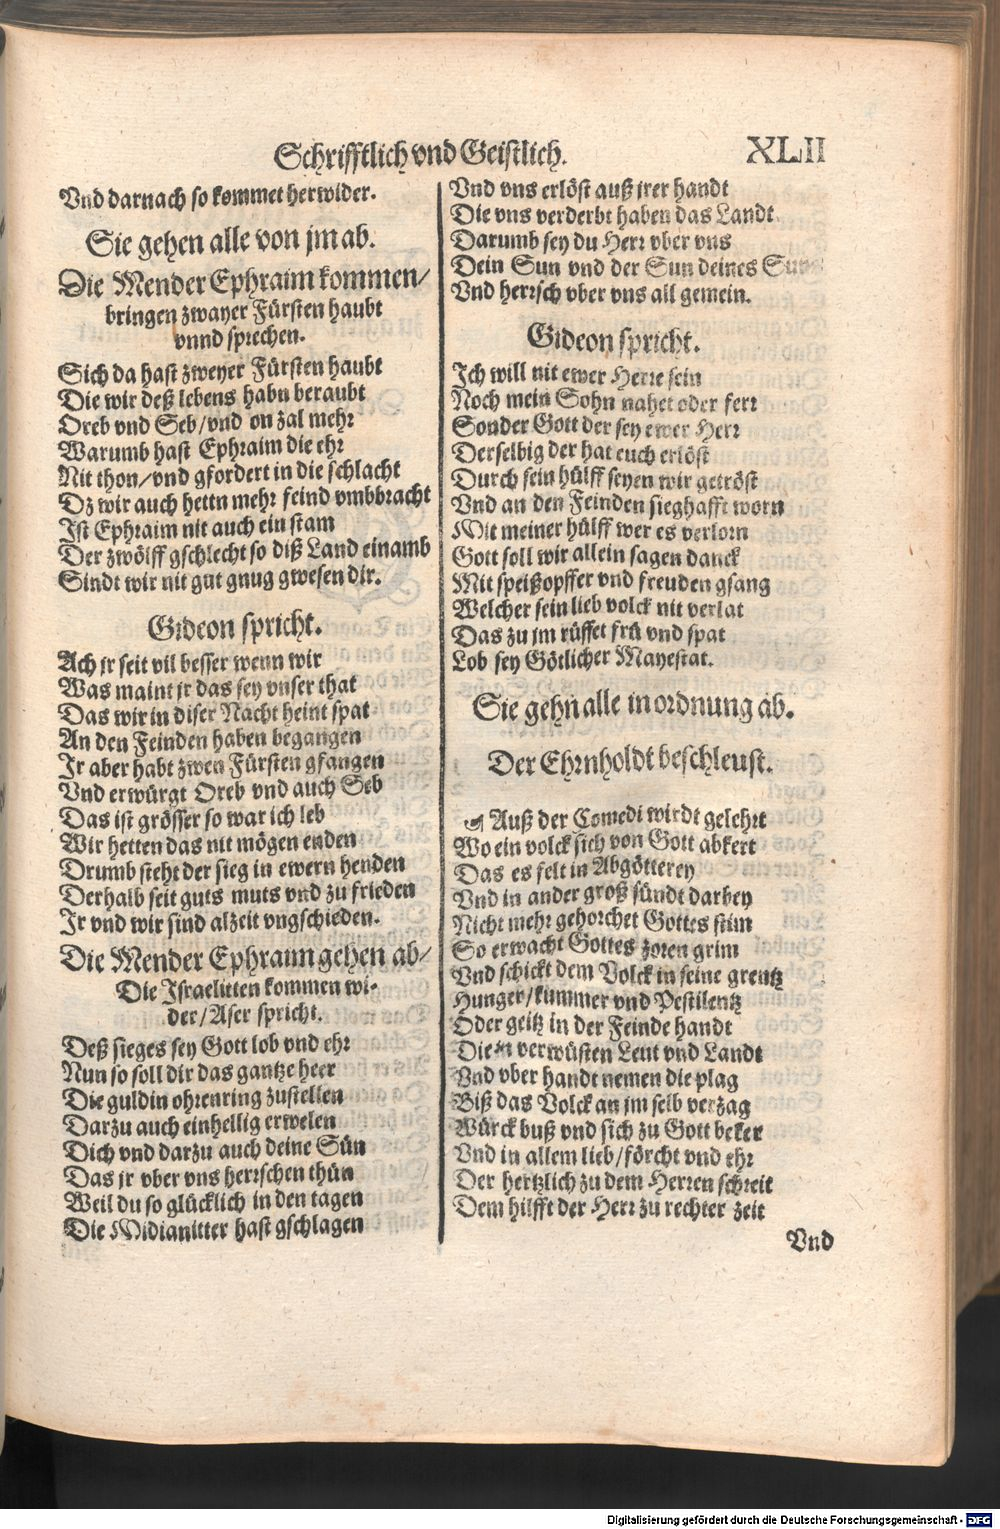 Schrifftlich vnd Geistlich.
XLII
Vnd darnach so kommet herwider.
Sie gehen alle von jm ab.
Die Mender Ephraim kommen/
bringen zwayer Fürsten haubt
vnnd sprechen.
Sich da hast zweyer Fürsten haubt
Die wir deß lebens habn beraubt
Oreb vnd Seb/vnd on zal mehr
Warumb hast Ephraim die ehr
Nit thon/vnd gfordert in die schlacht
Dz wir auch hettn mehr feind vmbbracht
Ist Ephraim nit auch ein stam
Der zwölff gschlecht so diß Land einamb
Sindt wir nit gut gnug gwesen dir.
Gideon spricht.
Ach jr seit vil besser wenn wir
Was maint jr das sey vnser that
Das wir in diser Nacht heint spat
An den Feinden haben begangen
Jr aber habt zwen Fürsten gfangen
Vnd erwürgt Oreb vnd auch Seb
Das ist grösser so war ich leb
Wir hetten das nit mögen enden
Drumb steht der sieg in ewern henden
Derhalb seit guts muts vnd zu frieden
Jr vnd wir sind alzeit vngschieden.
Die Mender Ephraim gehen ab/
Die Israelitten kommen wi-
der/Aser spricht.
Deß sieges sey Gott lob vnd ehr
Nun so soll dir das gantze heer
Die guldin ohrenring zustellen
Darzu auch einhellig erwelen
Dich vnd darzu auch deine Sün
Das jr vber vns herrschen thün
Weil du so glücklich in den tagen
Die Midianitter hast gschlagen
Vnd vns erlöst auß jrer handt
Die vns verderbt haben das Landt
Darumb sey du Herr vber vns
Dein Sun vnd der Sun deines Suns
Vnd herrsch vber vns all gemein.
Gideon spricht.
Ich will nit ewer Herre sein
Noch mein Sohn nahet oder ferr
Sonder Gott der sey ewer Herr
Derselbig der hat euch erlöst
Durch sein hülff seyen wir getröst
Vnd an den Feinden sieghafft worn
Mit meiner hülff wer es verlorn
Gott soll wir allein sagen danck
Mit speißopffer vnd freuden gsang
Welcher sein lieb volck nit verlat
Das zu jm rüffet frü vnd spat
Lob sey Götlicher Mayestat.
Sie gehn alle in ordnung ab.
Der Ehrnholdt beschleust.
Auß der Comedi wirdt gelehrt
Wo ein volck sich von Gott abkert
Das es felt in Abgötterey
Vnd in ander groß sündt darbey
Nicht mehr gehorchet Gottes stim
So erwacht Gottes zoren grim
Vnd schickt dem Volck in seine grentz
Hunger/kummer vnd Pestilentz
Oder geitz in der Feinde handt
Die jn verwüsten Leut vnd Landt
Vnd vber handt nemen die plag
Biß das Volck an jm selb verzag
Würck buß vnd sich zu Gott beker
Vnd in allem lieb/förcht vnd ehr
Der hertzlich zu dem Herren schreit
Dem hilfft der Herr zu rechter zeit
Vnd
Digitalisierung gefördert durch die Deutsche Forschungsgemeinschaft - DFG